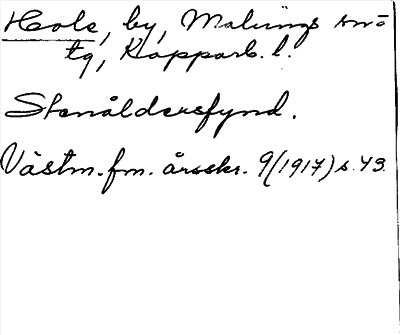 Hole, by, Malungs sn o
tg, Kopparb. l.
Stenåldersfynd.
Västm. fm. årsskr. 9(1917) s. 43.